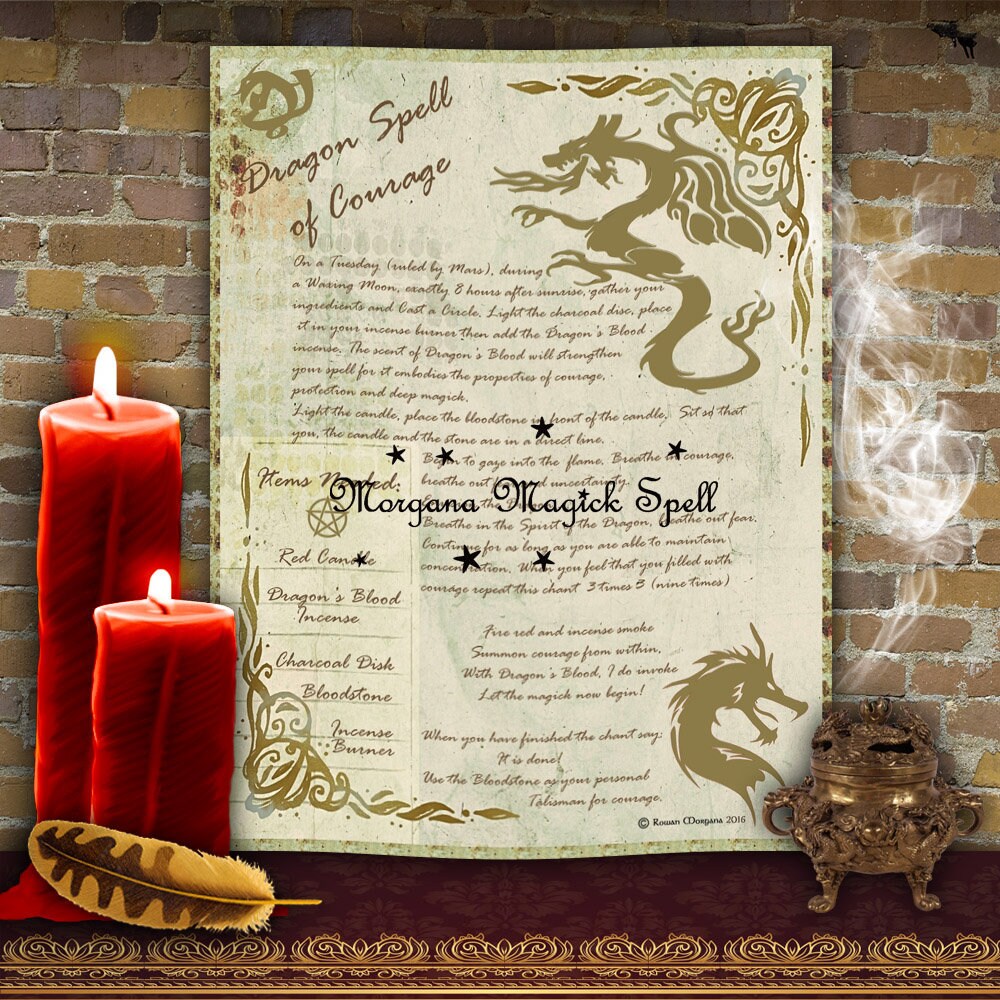 Dragon Spell
of Courage
On a Tuesday (ruled by Mars), during
a Waxing Moon, exactly 8 hours after sunrise, gather your
ingredients and Cast a Circle. Light the charcoal disc, place
it in your incense burner then add the Dragon's Blood
incense. The scent of Dragon's Blood will strengthen
your spell for it embodies the properties of courage,
protection and deep magick.
Light the candle, place the bloodstone in front of the candle, Sit so that
you, the candle and the stone are in a direct line.
Begin to gaze into the flame. Breathe in courage,
breathe out uncertainty.
the
Breathe in the Spirit of the Dragon, breathe out fear.
Continue for as long as you are able to maintain
concentration. When you feel that you filled with
courage repeat this chant 3 times 3 (nine times)
Fire red and incense smoke
Summon courage from within,
With Dragon's Blood, I do invoke
Let the magick now begin!
When you have finished the chant say:
It is done!
Use the Bloodstone as your personal
Talisman for courage.
© Rowan Morgana 2016
Items Needed:
Red Candle
Dragon's Blood
Incense
Charcoal Disk
Bloodstone
Incense
Burner
Morgana Magick Spell